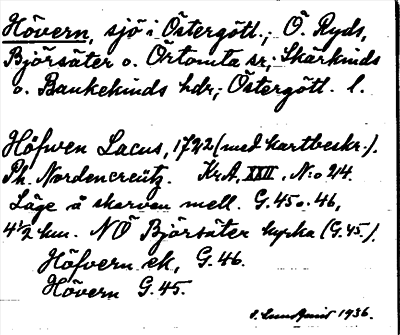 Hövern, sjö i Östergötl.; Ö. Ryds,
Björsäter o. Örtomta sr; Skärkinds
o. Bankekinds hdr; Östergötl. l.
Höfwen Lacus, 1722 (med kartbeskr.).
Ph. Nordencreutz. Kr.A. XXII. N:o 214.
Läge å skarven mell. G. 45 o. 46,
4 1/2 km. NÖ Björsäter kyrka (G. 45.).
Höfvern ek, G. 46.
Hövern G. 45.
1936.